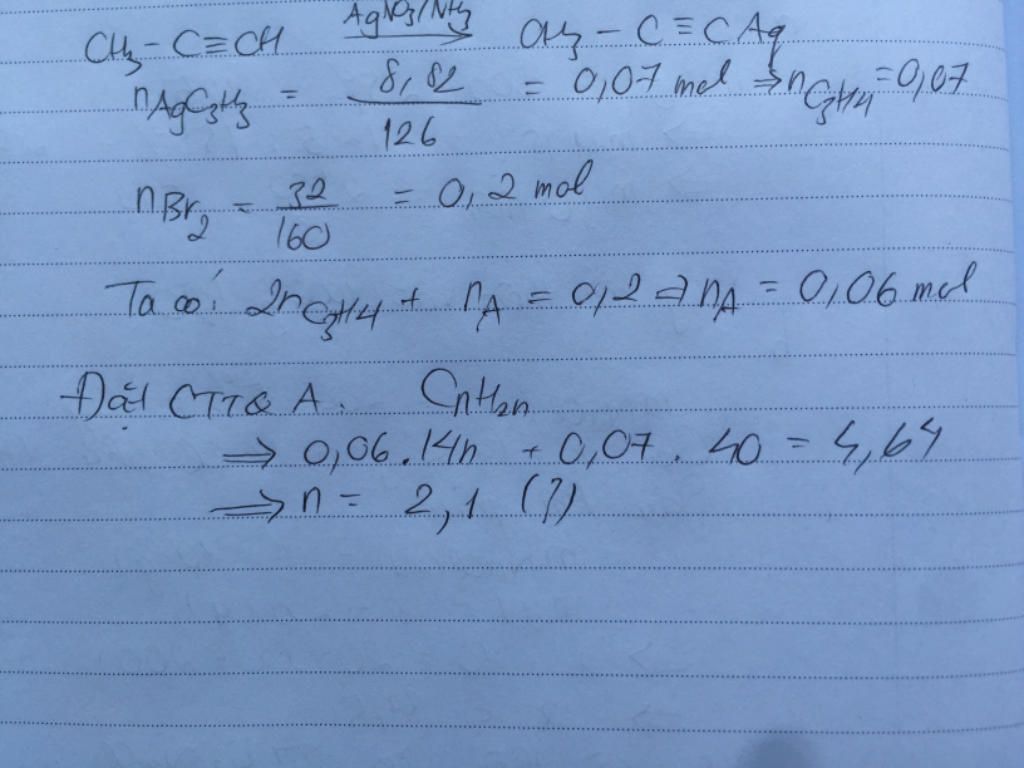 CH₃ – C ≡ CH —AgNO₃/NH₃→ CH₃ – C ≡ CAg
nAgC₃H₃ = 8,82/126 = 0,07 mol ⇒ nC₃H4 = 0,07
nBr₂ = 32/160 = 0,2 mol
Ta có: 2nC₃H4 + nA = 0,2 ⇒ nA = 0,06 mol
Đặt CTTQ A: CnH2n
⇒ 0,06.14n + 0,07 . 40 = 4,64
⇒ n = 2,1 (?)